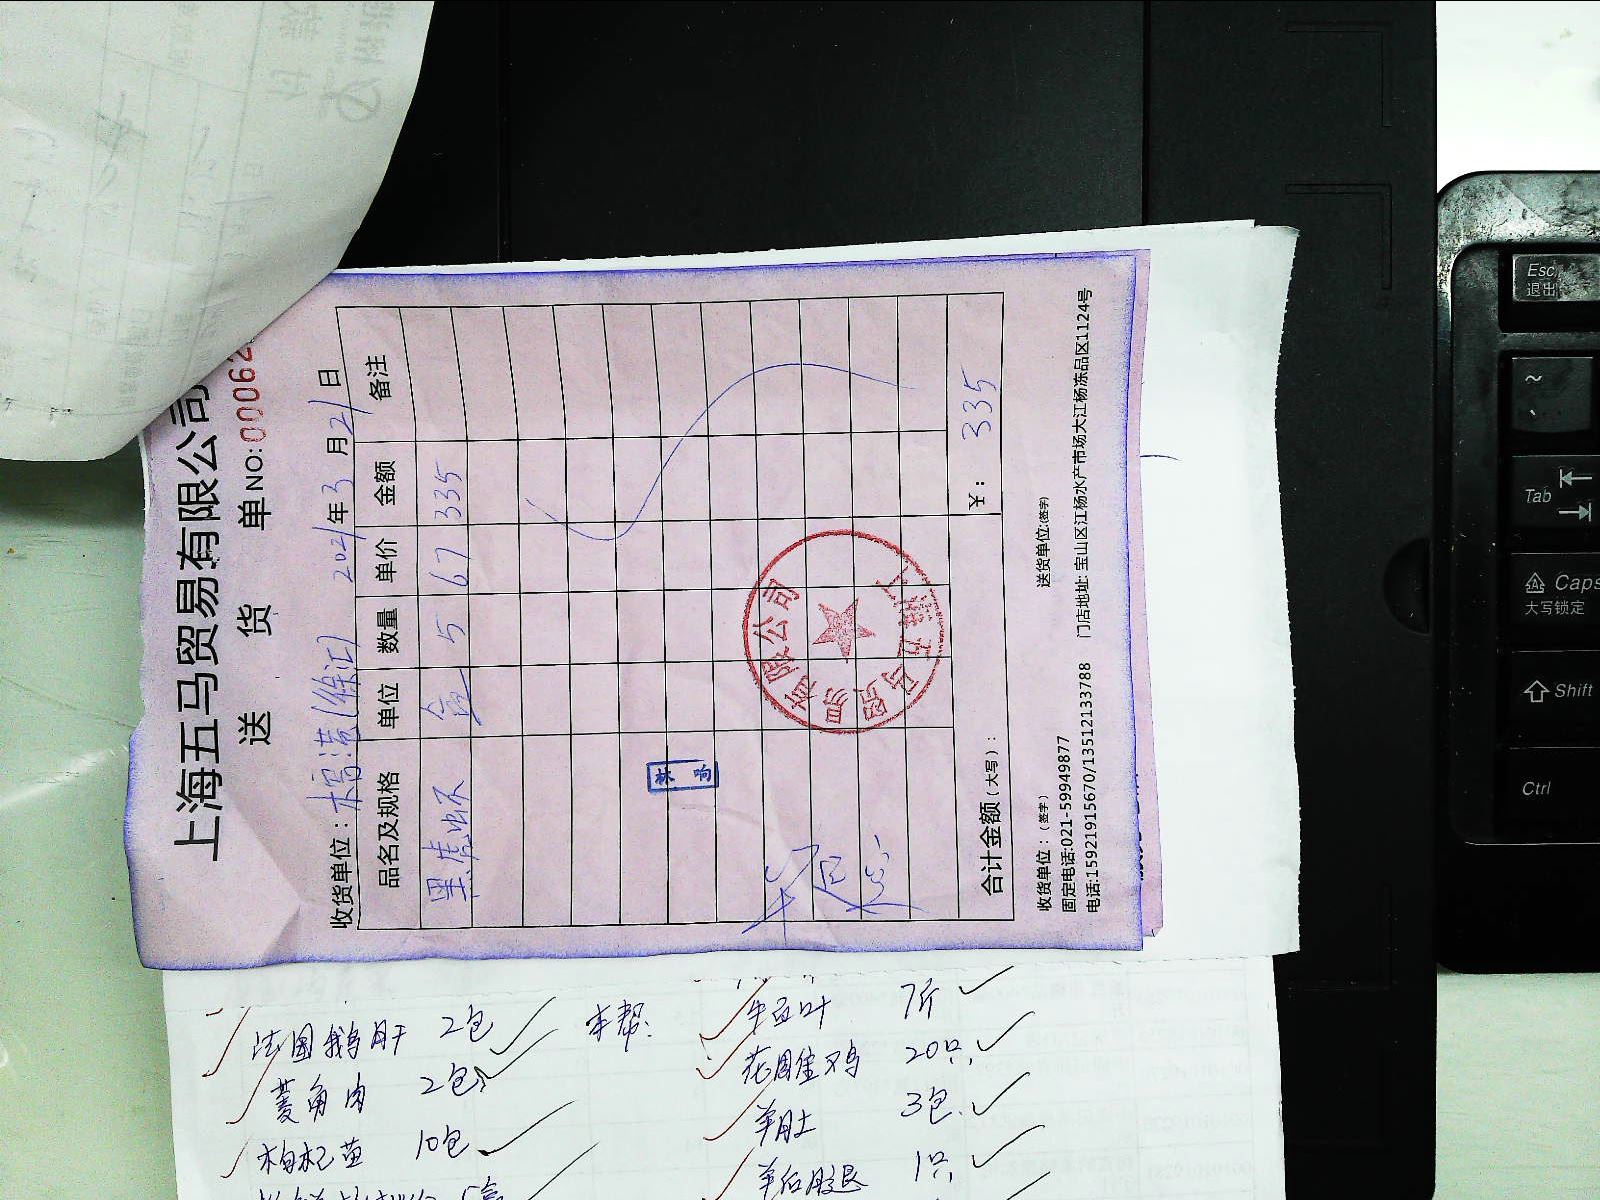 上海五马贸易有限公司
送 货 单 NO:00062
收货单位: (徐汇) 2021年3月21日
品名及规格 单位 数量 单价 金额 备注
黑虎虾 盒 5 67 335
上海五马贸易有限公司
合计金额(大写): ¥: 335
收货单位:(签字) 送货单位:(签字)
固定电话:021-59949877
电话:15921915670/13512133788 门店地址: 宝山区江杨水产市场大江杨冻品区1124号
法国鹅肝 2包
菱角肉 2包
枸杞苗 10包
本帮:
牛百叶 7斤
花雕鸡 20只
羊肚 3包
羊后腿 1只
Esc
退出
~
Tab
Caps
大写锁定
Shift
Ctrl